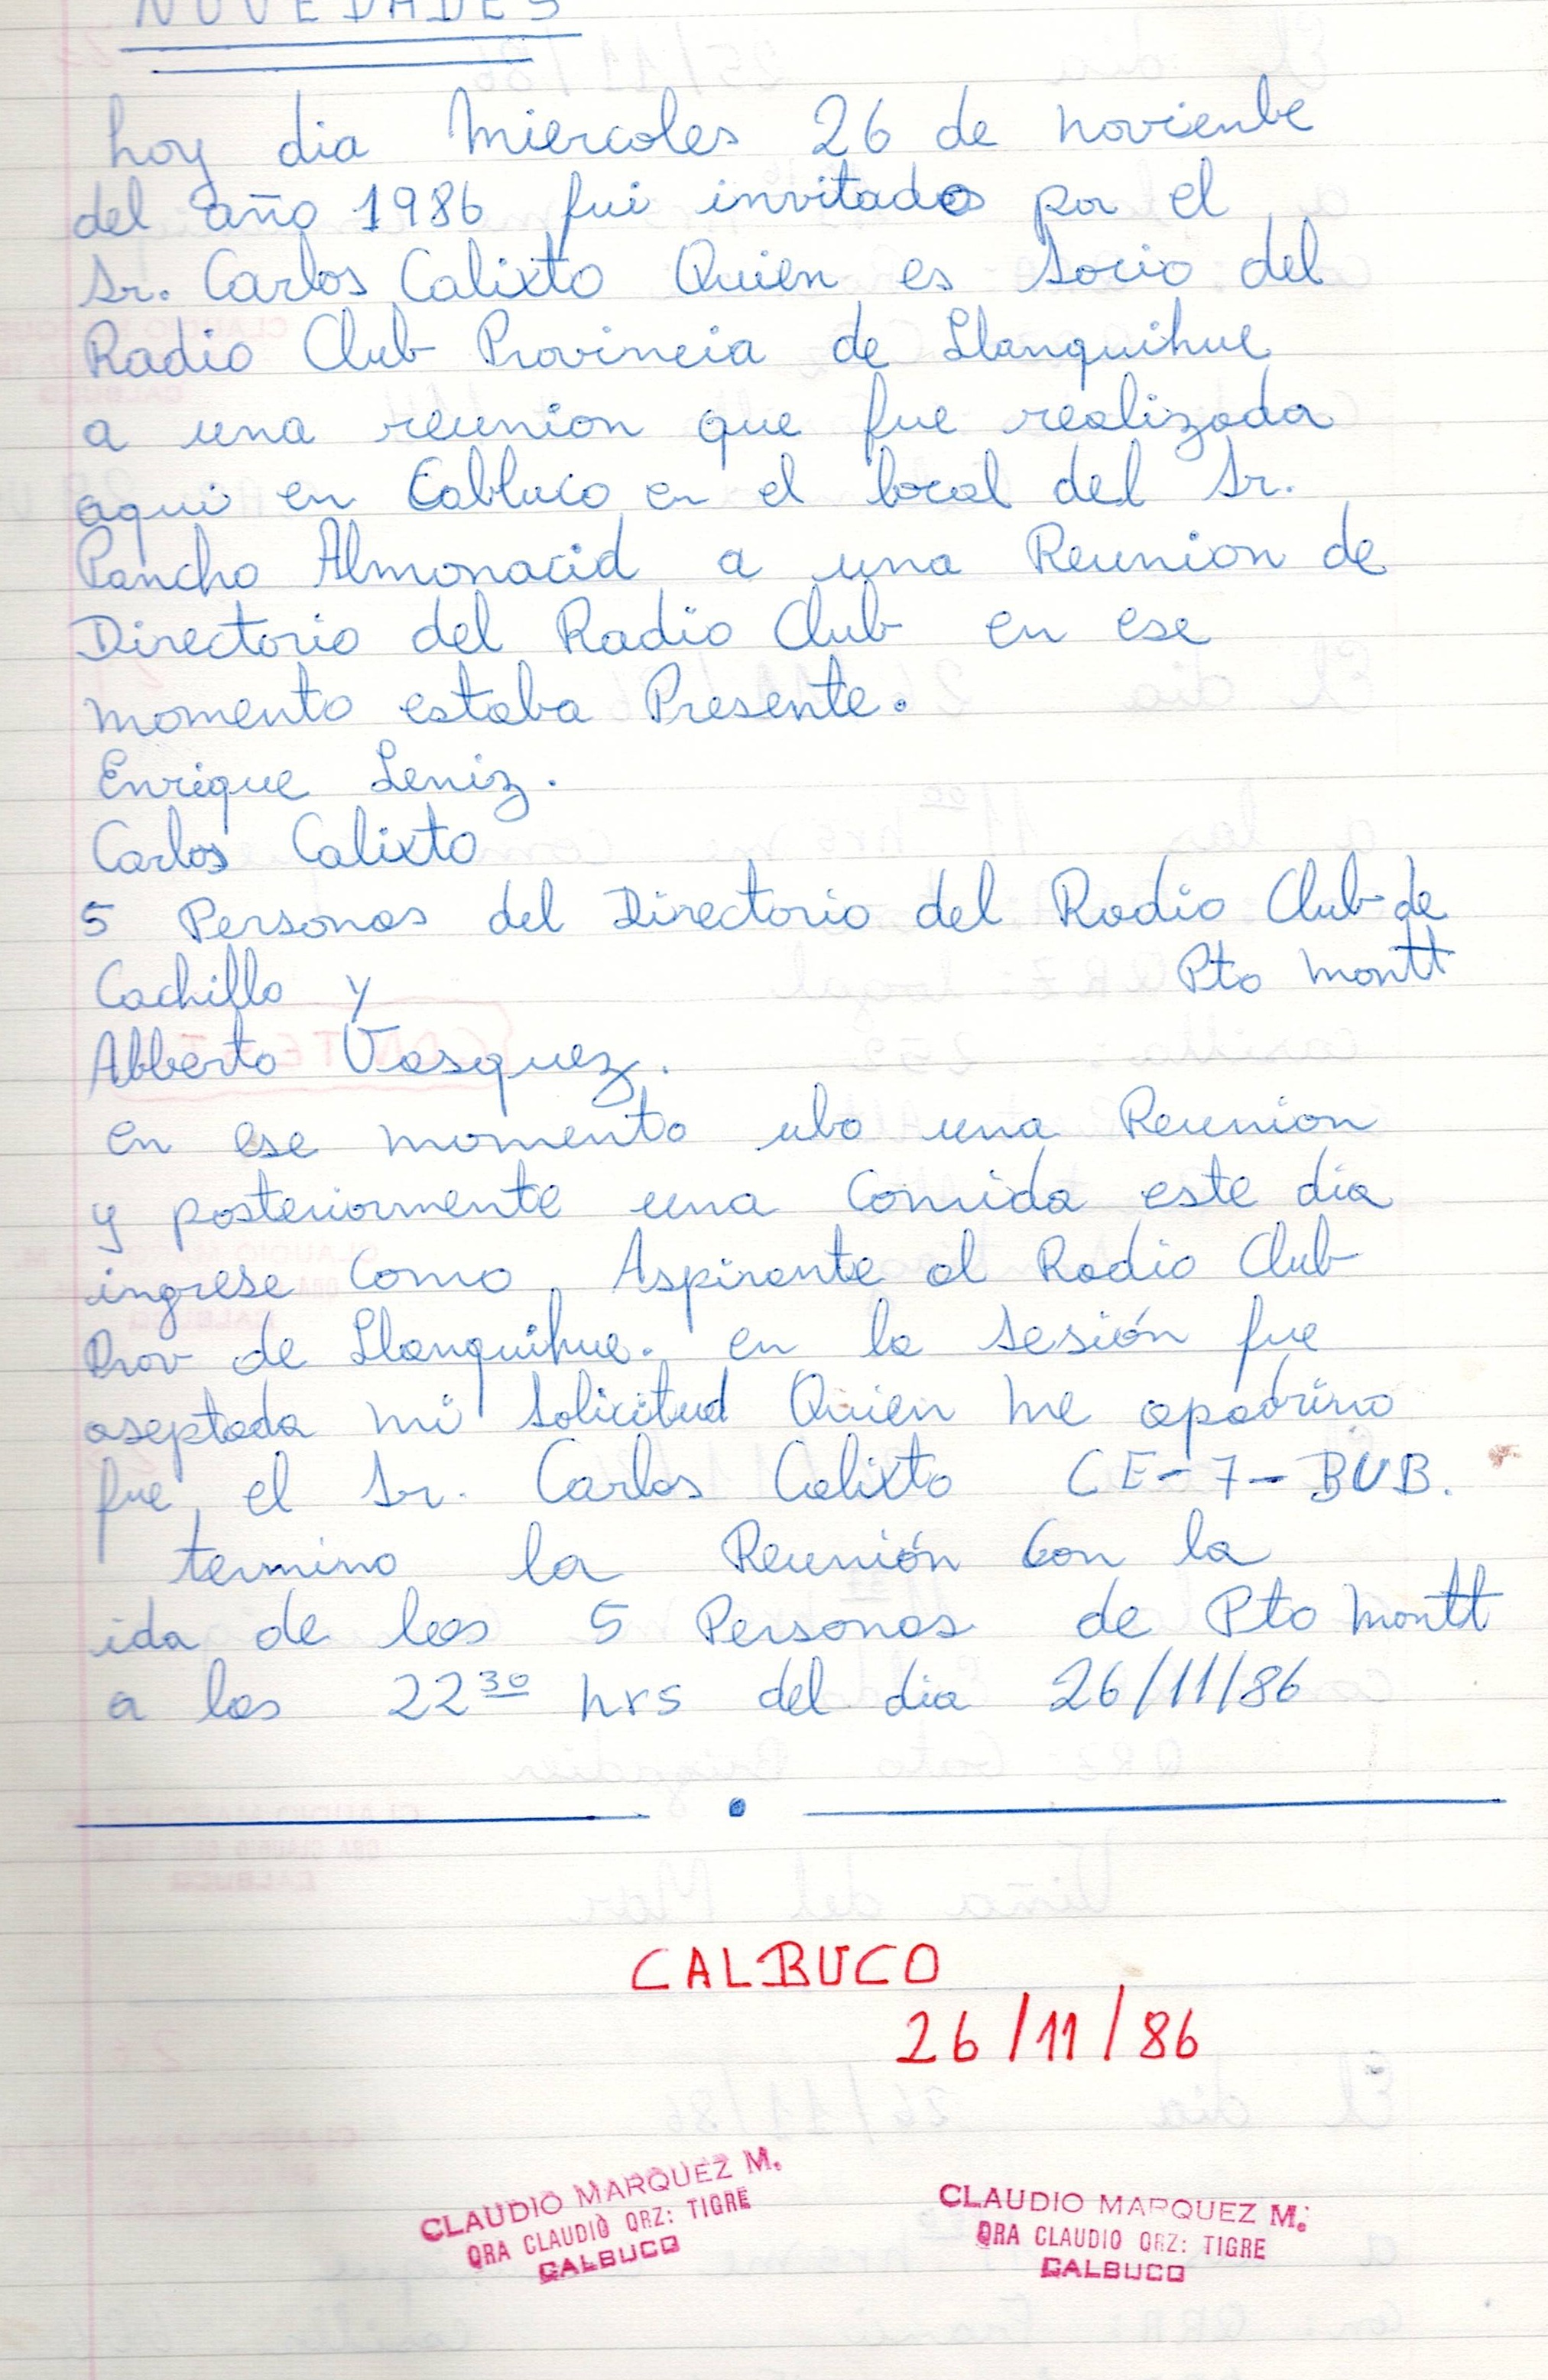 NOVEDADES
hoy dia Miercoles 26 de novienbe
del año 1986 fui invitado por el
Sr. Carlos Calixto Quien es Socio del
Radio Club Provincia de Llanquihue
a una reunion que fue realizada
aqui en Cabluco en el local del Sr.
Pancho Almonacid a una Reunion de
Directorio del Radio Club en ese
momento estaba Presente.
Enrique Leniz.
Carlos Calixto
5 Personas del Directorio del Radio Club de
Pto Montt
Cachillo y
Alberto Vasquez.
en ese momento ubo una Reunion
y posteriormente una Comida este dia
ingrese como Aspirante al Radio Club
Prov de Llanquihue. en la Sesión fue
aseptada mi Solicitud Quien me apadrino
fue el Sr. Carlos Calixto CE-7-BUB.
termino la Reunión Con la
ida de las 5 Personas de Pto Montt
a las 22 30 hrs del dia 26/11/86
CALBUCO
26/11/86
CLAUDIO MARQUEZ M.
QRA CLAUDIO QRZ: TIGRE
CALBUCO
CLAUDIO MARQUEZ M.
QRA CLAUDIO QRZ: TIGRE
CALBUCO